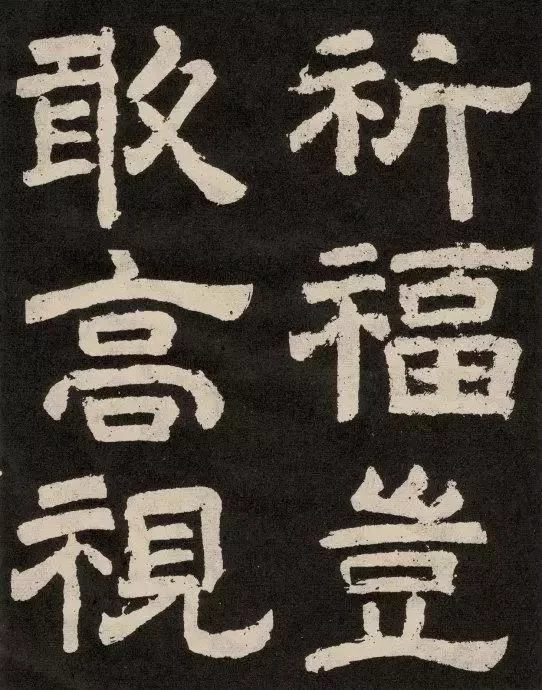 祈福豈
敢高視